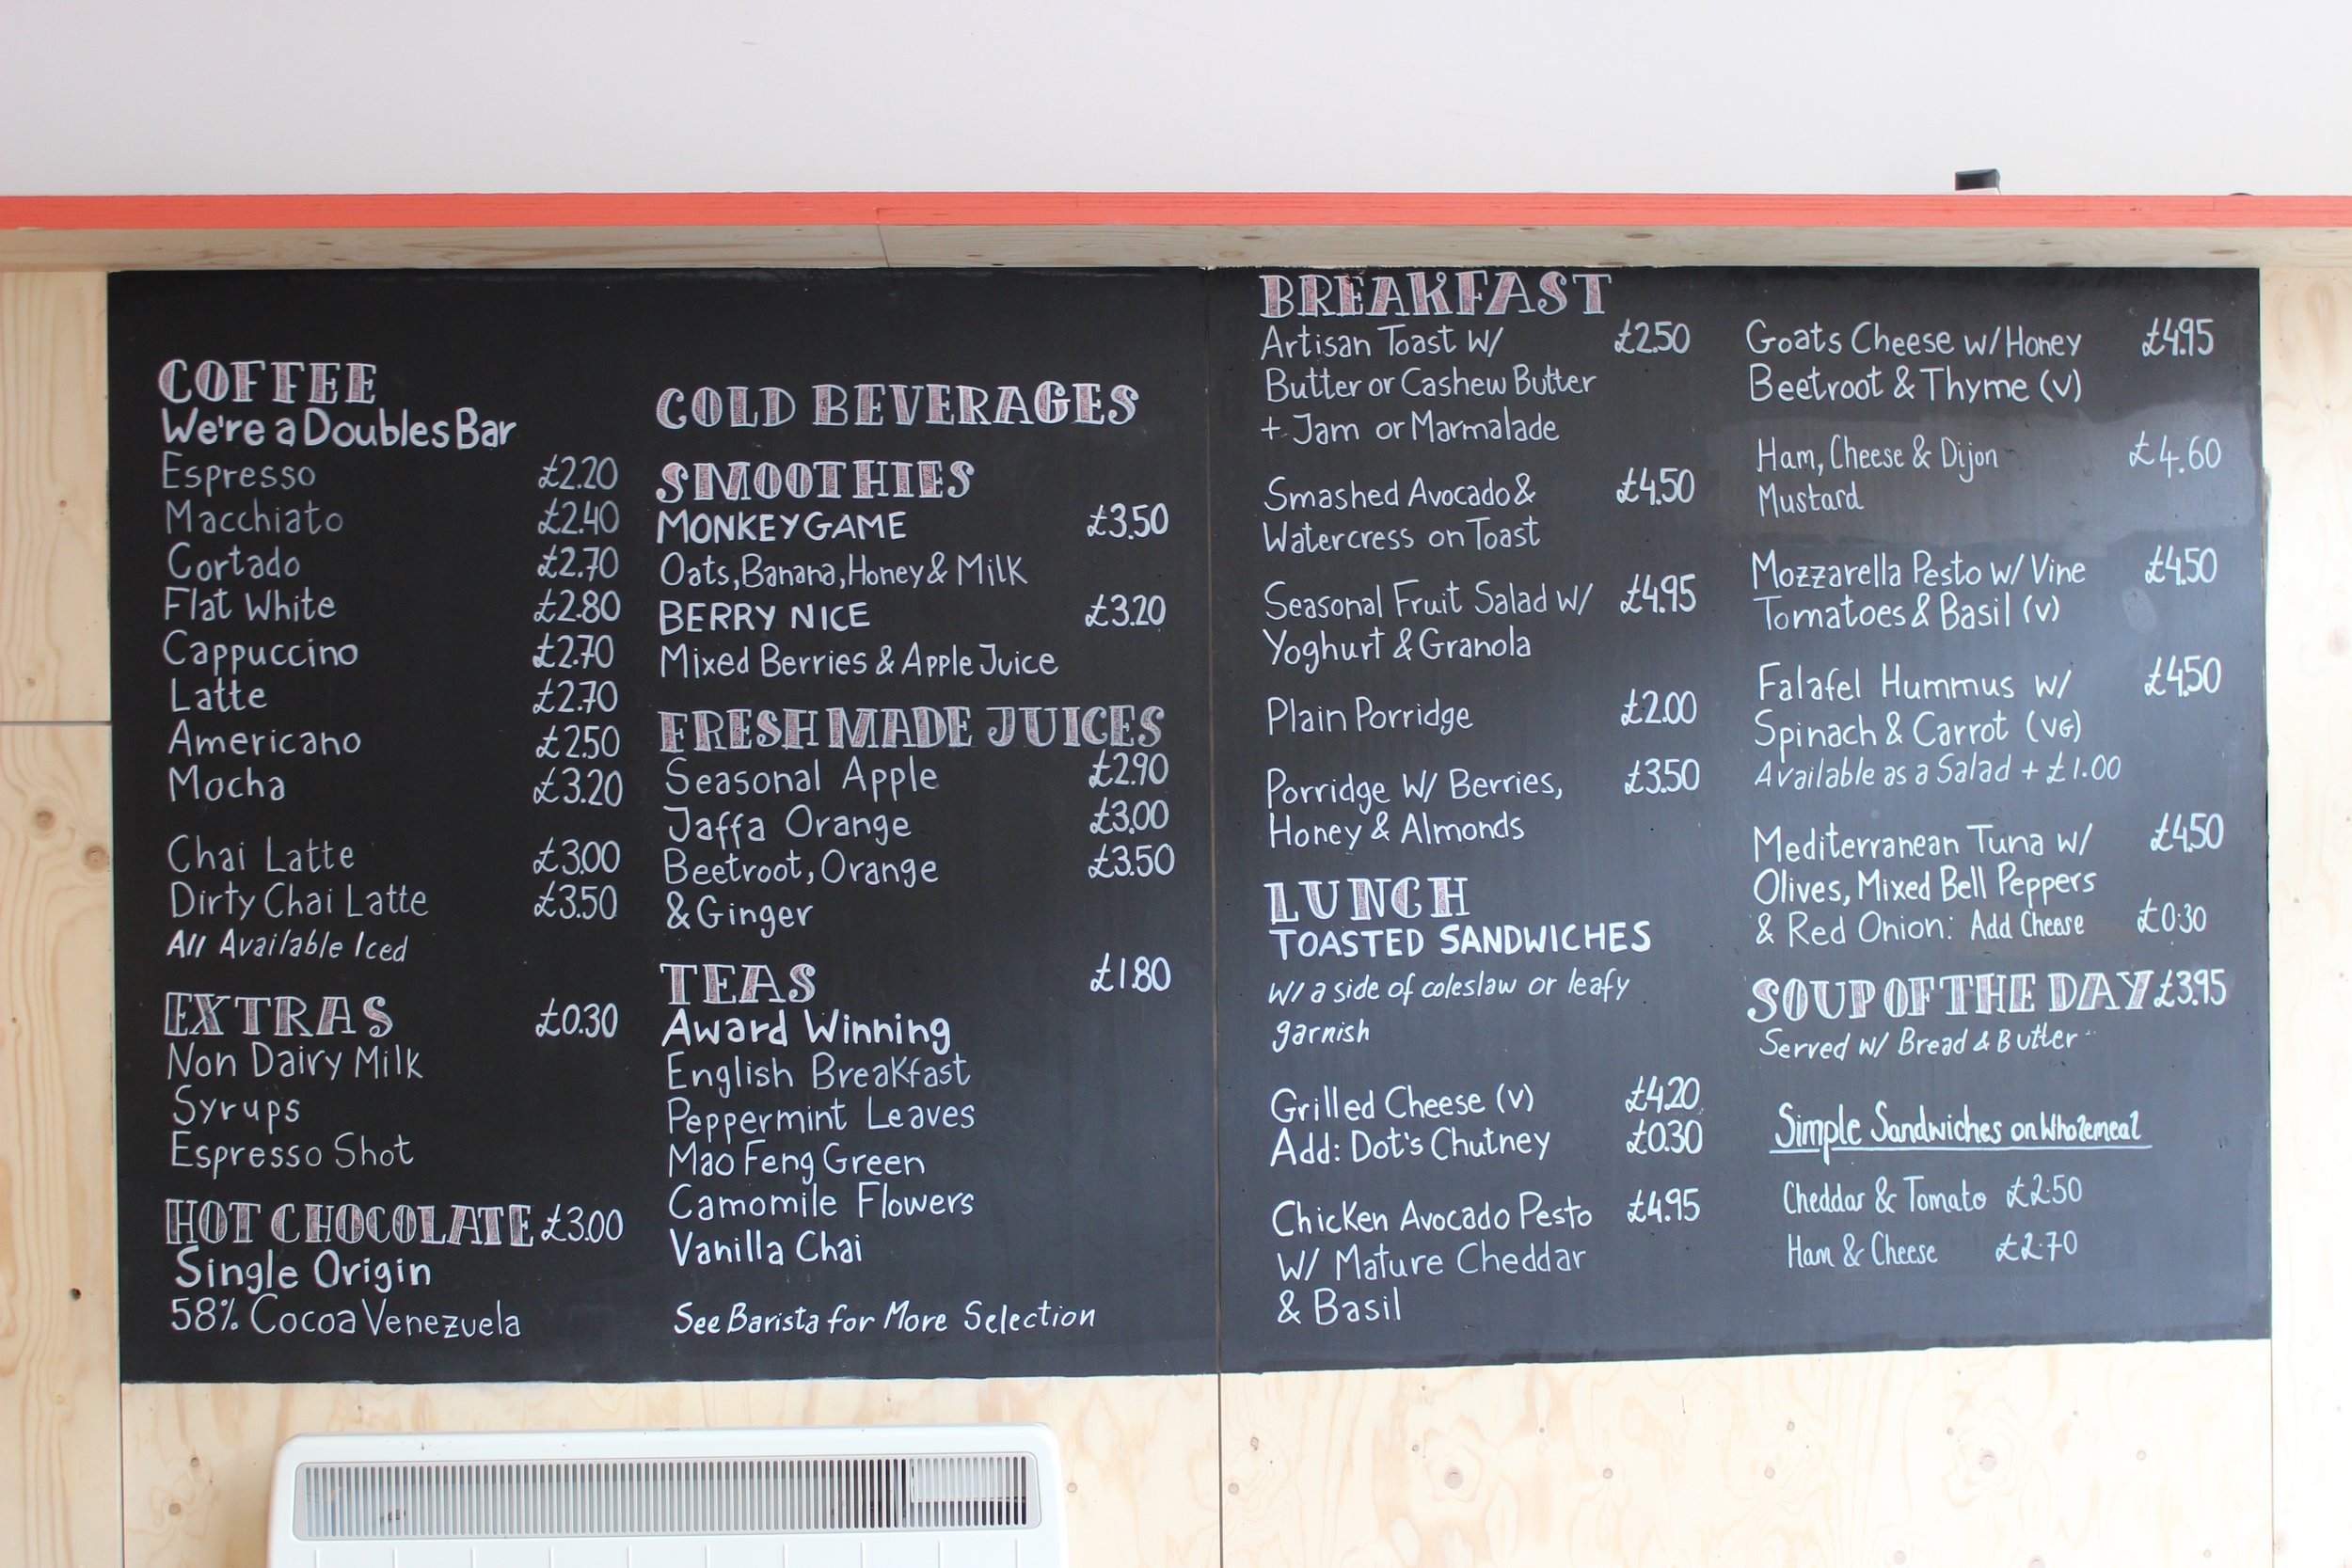 COFFEE
We're a Doubles Bar
Espresso £2.20
Macchiato £2.40
Cortado £2.70
Flat White £2.80
Cappuccino £2.70
Latte £2.70
Americano £2.50
Mocha £3.20
Chai Latte £3.00
Dirty Chai Latte £3.50
All Available Iced
EXTRAS £0.30
Non Dairy Milk
Syrups
Espresso Shot
HOT CHOCOLATE £3.00
Single Origin
58% Cocoa Venezuela
COLD BEVERAGES
SMOOTHIES
MONKEY GAME £3.50
Oats, Banana, Honey & Milk
BERRY NICE £3.20
Mixed Berries & Apple Juice
FRESH MADE JUICES
Seasonal Apple £2.90
Jaffa Orange £3.00
Beetroot, Orange £3.50
& Ginger
TEAS £1.80
Award Winning
English Breakfast
Peppermint Leaves
Mao Feng Green
Camomile Flowers
Vanilla Chai
See Barista for More Selection
BREAKFAST
Artisan Toast W/ £2.50
Butter or Cashew Butter
+ Jam or Marmalade
Smashed Avocado & £4.50
Watercress on Toast
Seasonal Fruit Salad W/ £4.95
Yoghurt & Granola
Plain Porridge £2.00
Porridge W/ Berries, £3.50
Honey & Almonds
LUNCH
TOASTED SANDWICHES
W/ a side of coleslaw or leafy
garnish
Grilled Cheese (v) £4.20
Add: Dot's Chutney £0.30
Chicken Avocado Pesto £4.95
W/ Mature Cheddar
& Basil
Goats Cheese w/ Honey £4.95
Beetroot & Thyme (v)
Ham, Cheese & Dijon £4.60
Mustard
Mozzarella Pesto w/ Vine £4.50
Tomatoes & Basil (v)
Falafel Hummus w/ £4.50
Spinach & Carrot (VG)
Available as a Salad + £1.00
Mediterranean Tuna w/ £4.50
Olives, Mixed Bell Peppers
& Red Onion: Add Cheese £0.30
SOUP OF THE DAY £3.95
Served w/ Bread & Butter
Simple Sandwiches on Wholemeal
Cheddar & Tomato £2.50
Ham & Cheese £2.70